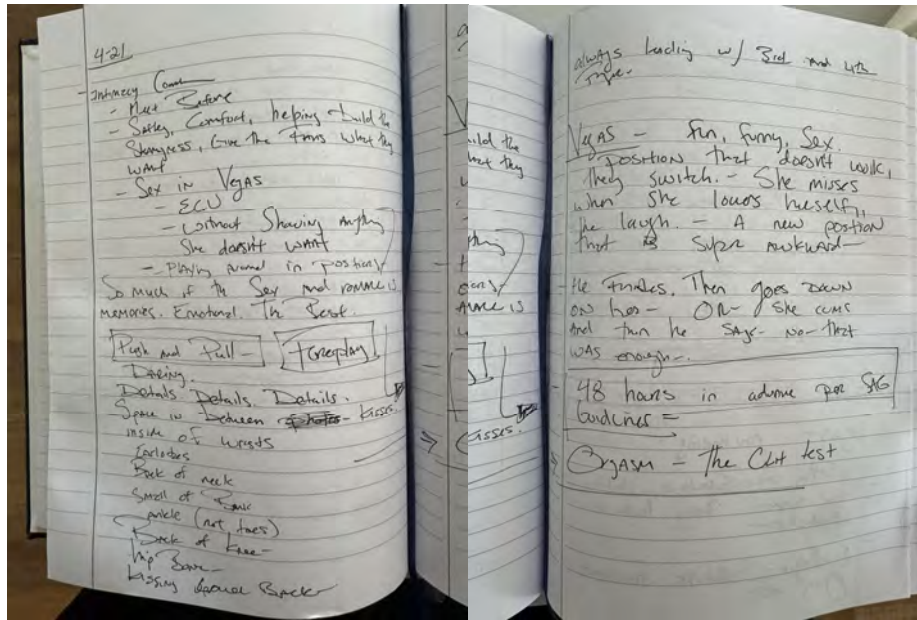 4-21
- Intimacy Coach
- Meet Before
- Safety, Comfort, helping build the
Storyness, Give the Fans what they
want
- Sex in Vegas
- ECU
- without Showing Anything
She doesn't want
- Playing around in positions
So much of the Sex and romance is
memories. Emotional. The Best.
Push and Pull - Foreplay
Daring.
Details Details. Details.
Space in Between kisses.
inside of wrists
Earlobes
Back of neck
Small of Back
ankle (not toes)
Back of knee -
hip Bone -
kissing Back
always leading w/ 3rd and 4th
VegAS - fun, funny, Sex.
position that doesn't work,
they switch. - She misses
when she lowers herself,
he laugh. - A new postion
that is Super Awkward -
- He finishes. Then goes down
on her - OR - she cums
And then he SAYS - No - that
WAS enough -.
48 hours in advance per SAG
Guidlines =
Orgasm - The Clit test